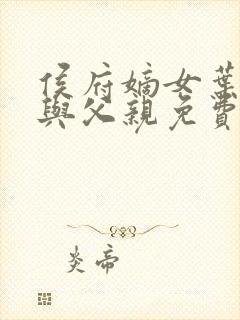 侯府嫡女葉
與父親免費
炎帝